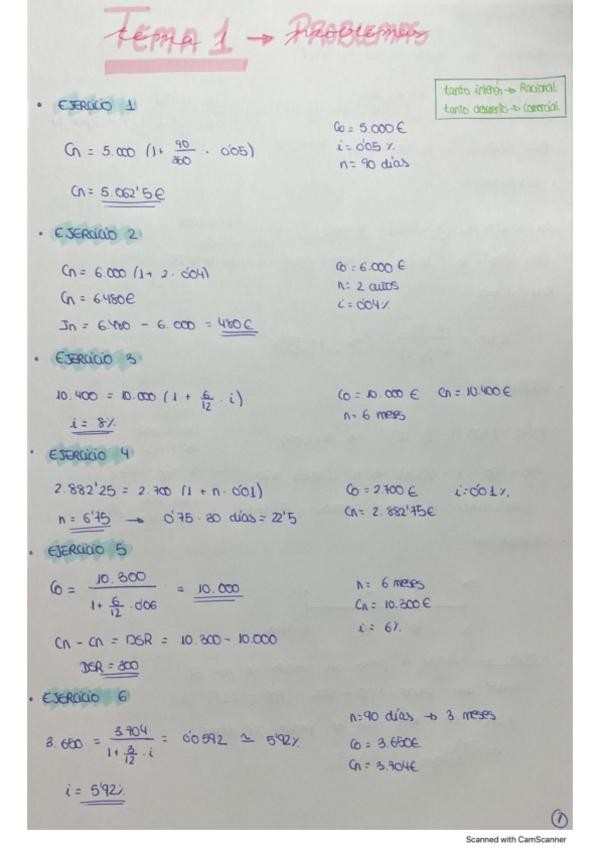 TEMA 1 → PROBLEMAS
tanto interés → Racional
tanto descuento → Comercial
• EJERCICIO 1
Cn = 5.000 (1 + 90/360 · 0'05)
Cn = 5.062'5€
C0 = 5.000 €
i = 0'05 %
n = 90 días
• EJERCICIO 2
Cn = 6.000 (1 + 2 · 0'04)
Cn = 6480€
In = 6.480 - 6.000 = 480€
C0 = 6.000 €
n = 2 años
i = 0'04 %
• EJERCICIO 3
10.400 = 10.000 (1 + 6/12 · i)
i = 8%
C0 = 10.000 € Cn = 10.400€
n = 6 meses
• EJERCICIO 4
2.882'25 = 2.700 (1 + n · 0'01)
n = 6'75 → 0'75 · 30 días = 22'5
C0 = 2.700 € i = 0'01 %
Cn = 2.882'75€
• EJERCICIO 5
C0 = 10.300 / 1 + 6/12 · 0'06 = 10.000
Cn - Cn = DSR = 10.300 - 10.000
DSR = 300
n = 6 meses
Cn = 10.300 €
i = 6%
• EJERCICIO 6
3.650 = 3.704 / 1 + 3/12 · i = 0'0592 ≃ 5'92%
i = 5'92%
n = 90 días → 3 meses
C0 = 3.650€
Cn = 3.704€
1
Scanned with CamScanner